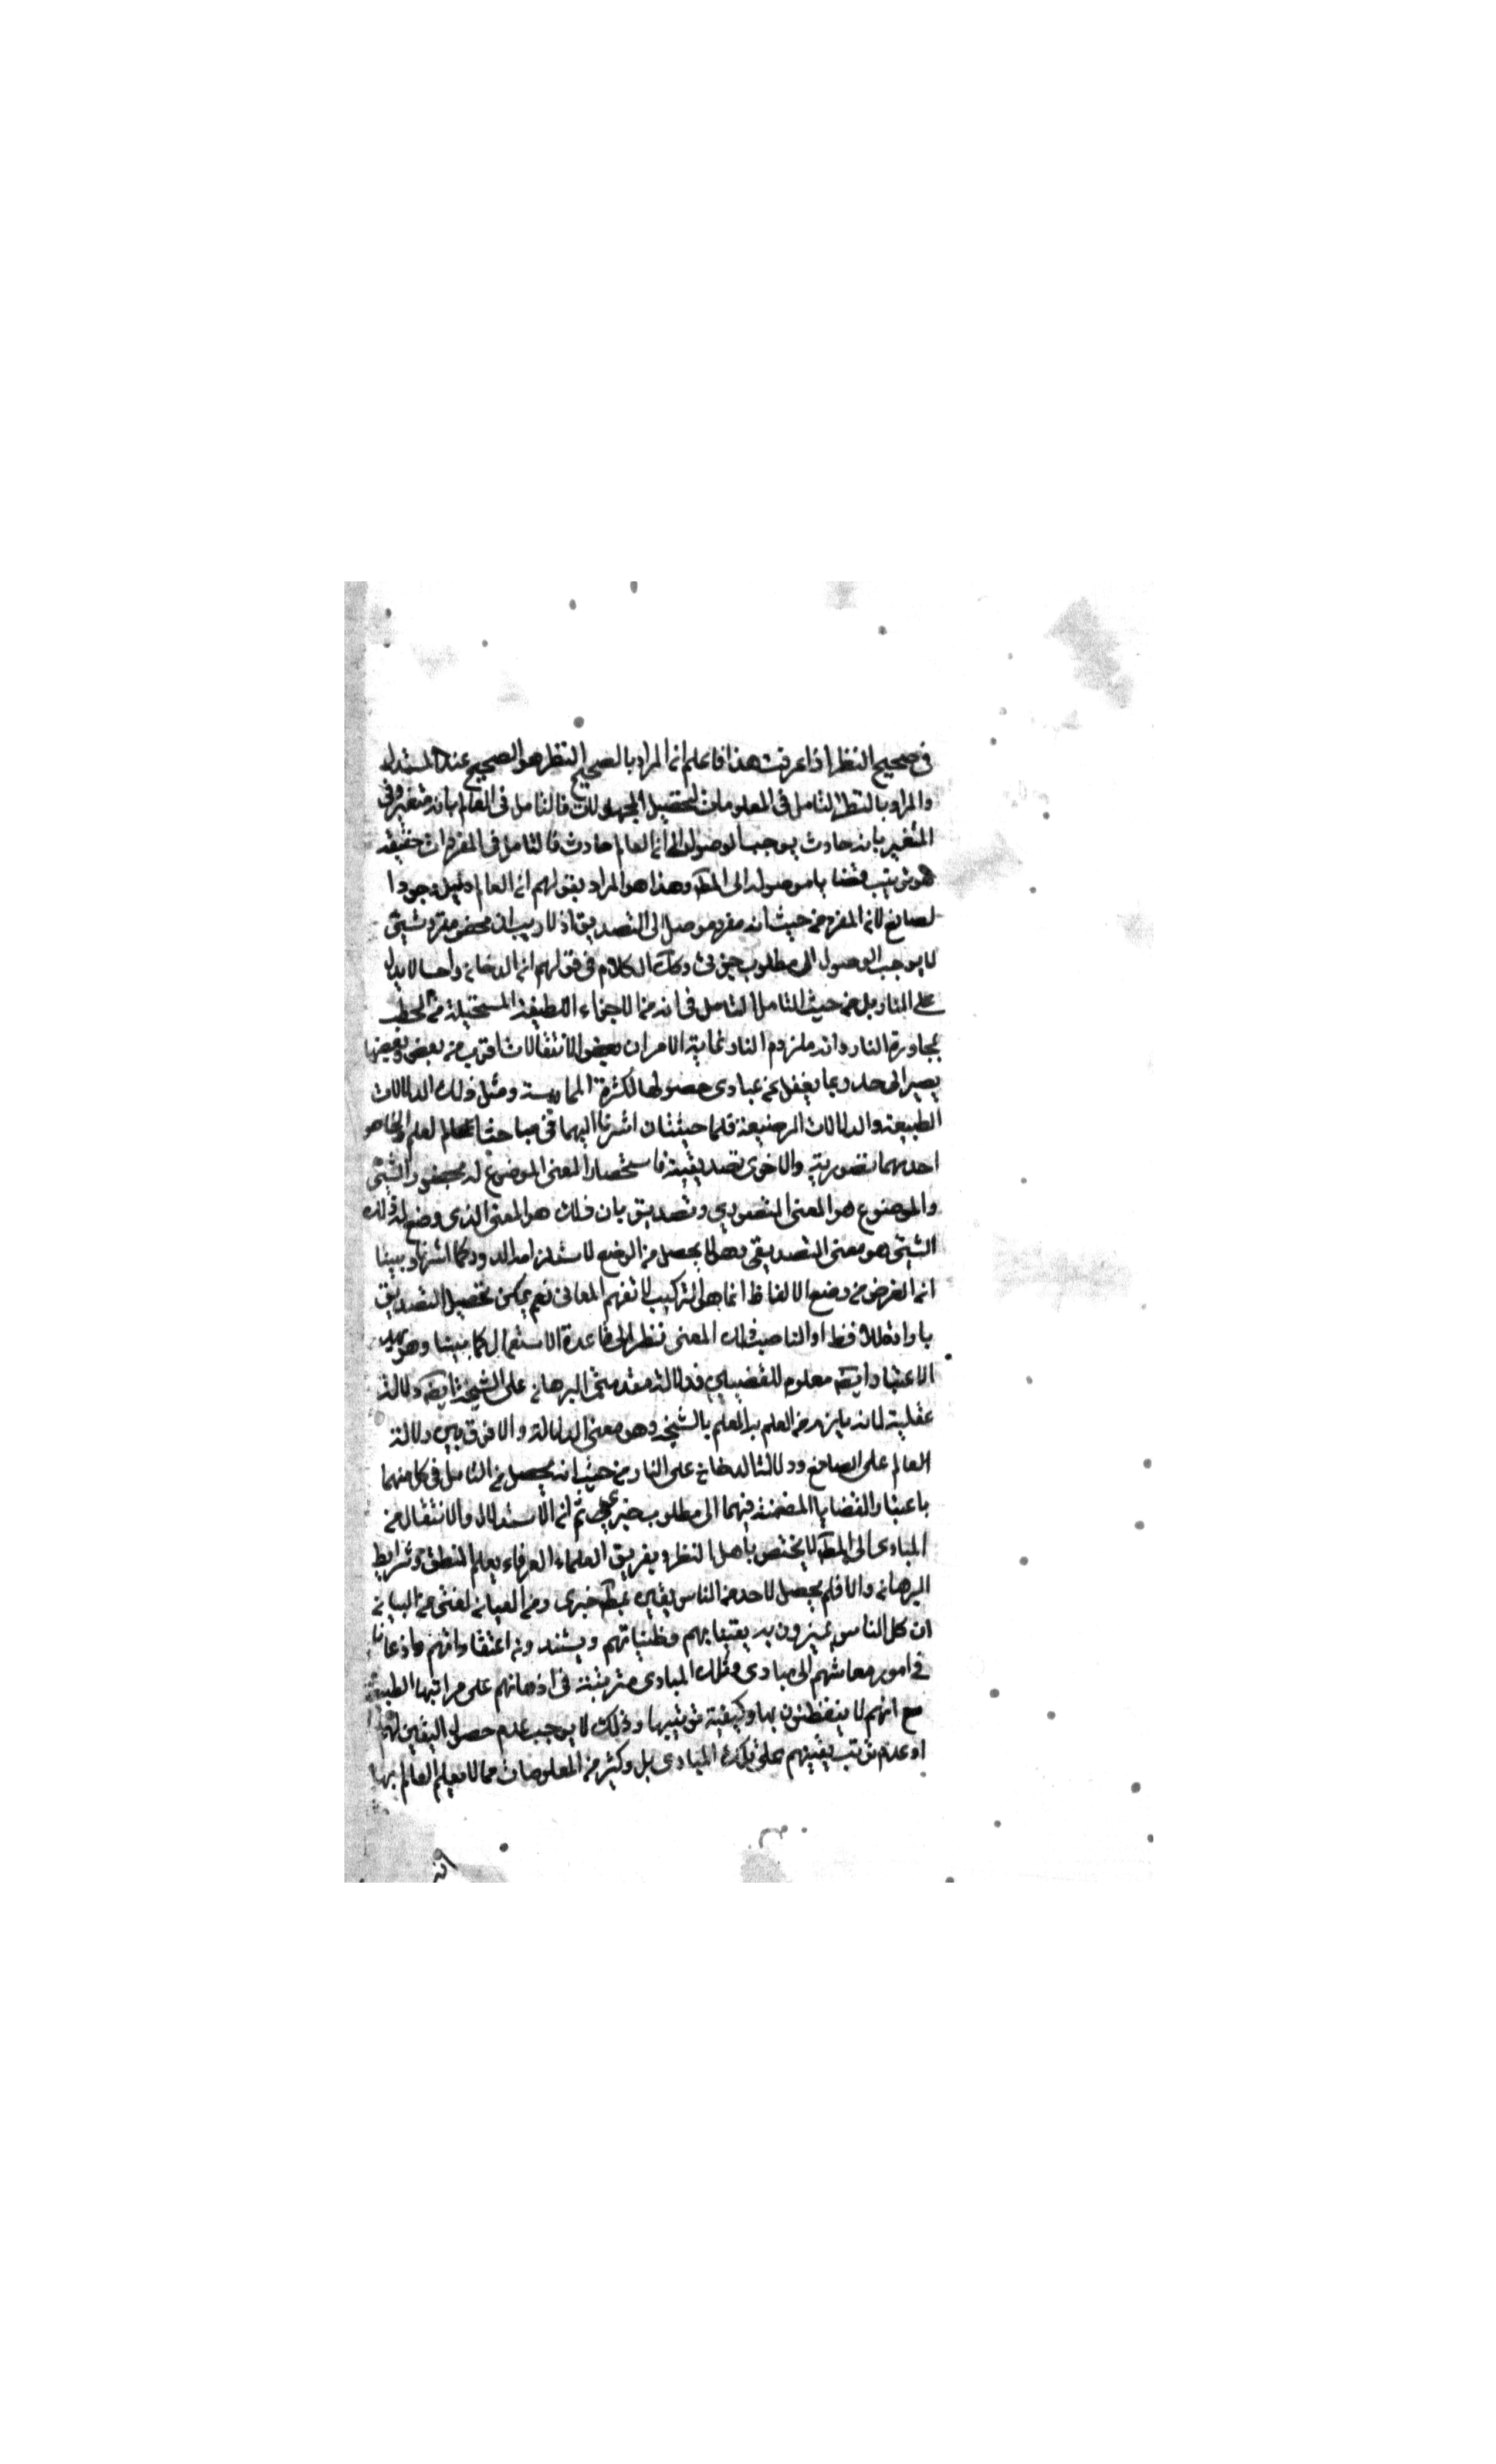 في صحيح النظر اذا عرفت هذا فاعلم ان المراد بالصحيح النظر هو الصحيح عند المستدل
والمراد بالنظر التامل في المعلومات لتحصيل المجهولات فالتامل في العالم بانه متغير وفي
المتغير بانه حادث يوجب الوصول الى ان العالم حادث فالتامل في المفردات حقيقة
هو ترتيب قضايا موصولة الى المط وهذا هو المراد بقولهم ان العالم دليل وجود ا
لصانع لا ان المفرد من حيث انه مفرد موصل الى التصديق اذ لا ريب ان محض مفرد شيئ
لا يوجب الوصول الى مطلوب خبري وكك الكلام في قولهم ان الدخان واحـا لا يدل
على النار بل من حيث التامل التامل في انه من الاجزاء اللطيفة المستحيلة من الحطب
بمجاورة النار وانه ملزوم النار غاية الامر ان بعض الانتقالات اقرب من بعض وبعضها
يصير الى حد ربما يغفل عن مبادى حصولها لكثرة الممارسة ومثل ذلك الدلالات
الطبيعية والدلالات الوضعية فلها حيثيتان اشرنا اليهما في مباحث لعلم والخاص
احديهما تصورية والاخرى تصديقية فاستحضار المعنى الموضوع له بحضور الشيئ
والموضوع هو المعنى التصوري وتصديق بان ذلك هو المعنى الذي وضع له ذلك
الشيئ هو معنى التصديقي وهل لا يحصل من الوضع لاستلزامه الدور كما اشرنا وبينا
ان الغرض من وضع الالفاظ انما هو التركيب لا تفهم المعاني نعم يمكن تحصيل التصديق
بارادة اللافظ او الناصب ذلك المعنى نظرا الى قاعدة الاستعمال كما بينا وهو بهذا
الاعتبار ايضا معلوم للتفصيلي فدلالة مقدمتي البرهان على النتيجة ايضا دلالة
عقلية لانه يلزم من العلم به العلم بالنتيجة وهو معنى الدلالة والا فرق بين دلالة
العالم على الصانع ودلالة الدخان على النار من حيث انه يحصل من التامل في كل منهما
باعتبار القضايا المضمنة فيهما الى مطلوب خبري ثم ان الاستدلال والانتقال من
المبادى الى المط لا يختص باهل النظر وبفريق العلماء العرفاء بعلم المنطق وشرايط
البرهان والا فلم يحصل لاحد من الناس يقين بمط خبرى ومن العيان لغنى عن البيان
ان كل الناس يميزون بين يقينياتهم وظنياتهم ويستندون اعتقاداتهم واذعانا
في امور معاشهم الى مبادى وتلك المبادى مترتبة في اذهانهم على مراتبها الطبيعية
مع انهم لا يتفطنون بها وكيفية ترتيبها وذلك لا يوجب عدم حصول اليقين لهم
او عدم ترتب يقينهم على تلك المبادى بل وكثير من المعلومات مما لا يعلم العالم بها